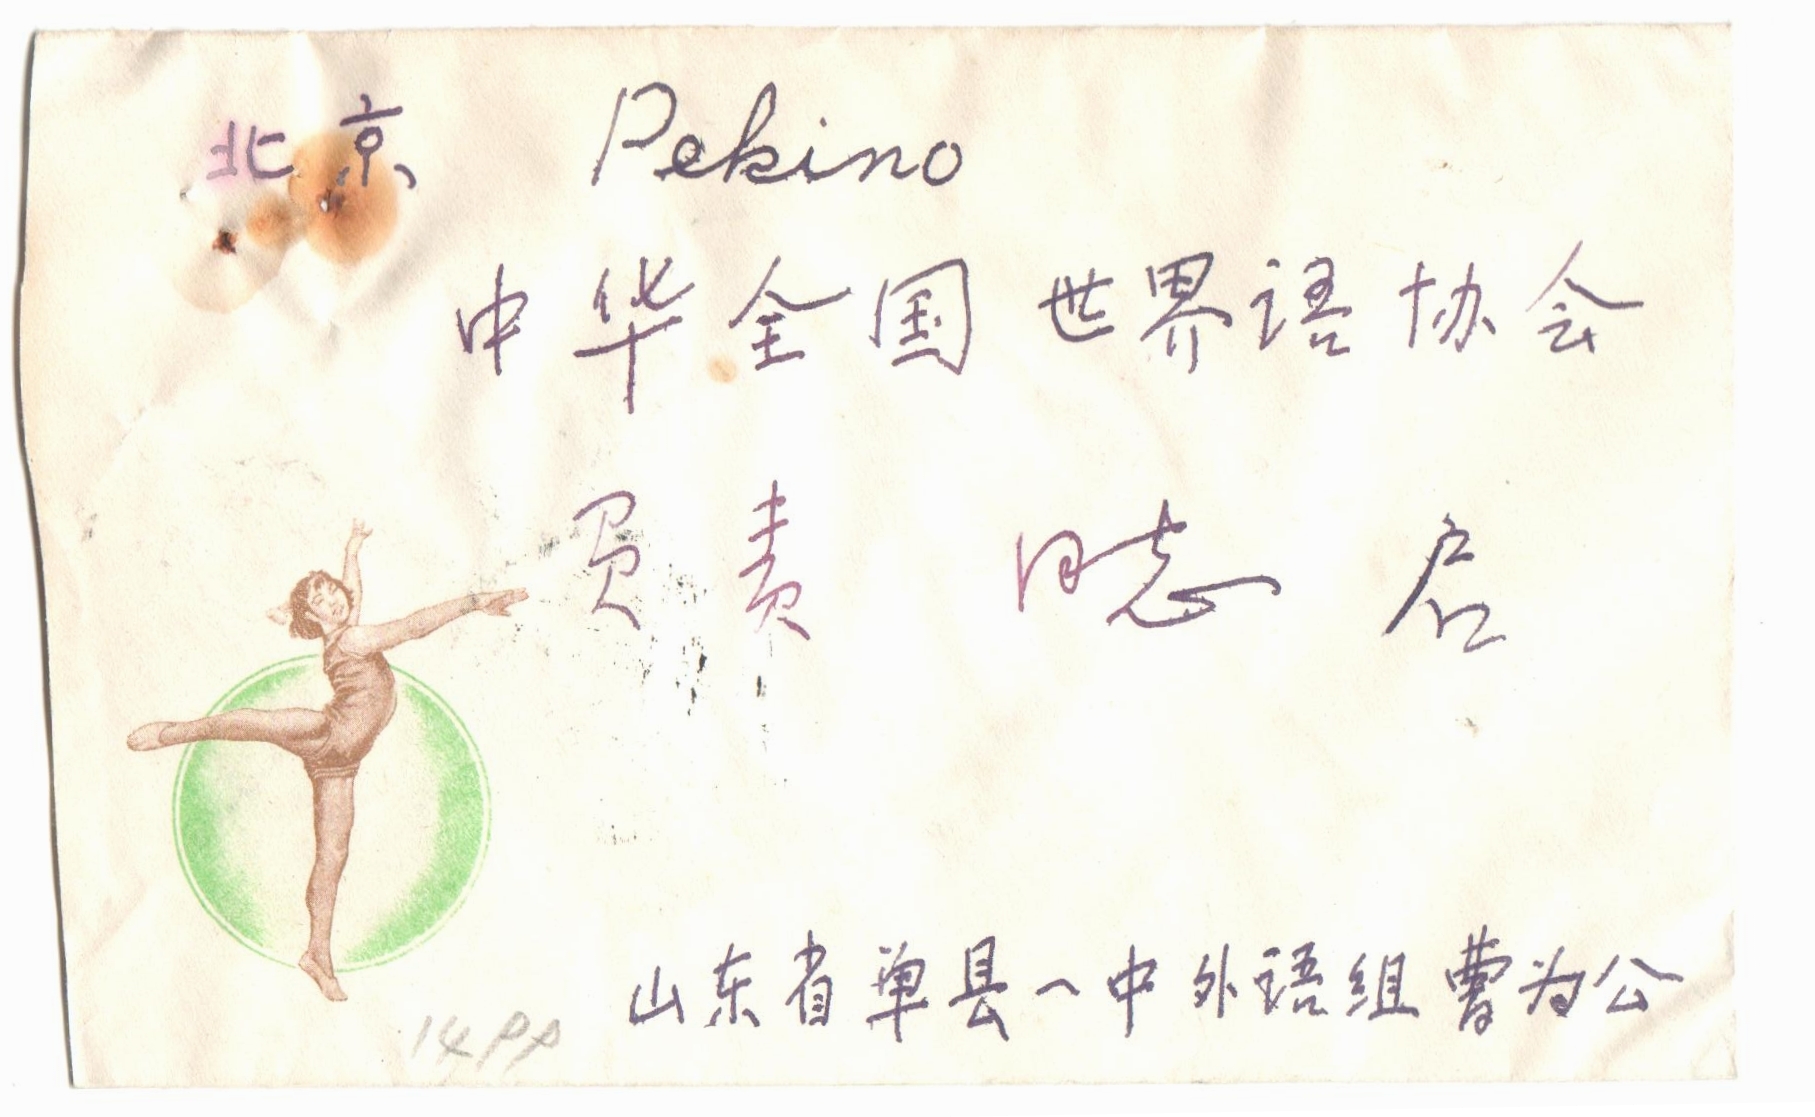 北京 Pekino
中华全国世界语协会
负责 同志 启
山东省单县一中外语组曹为公
14PP